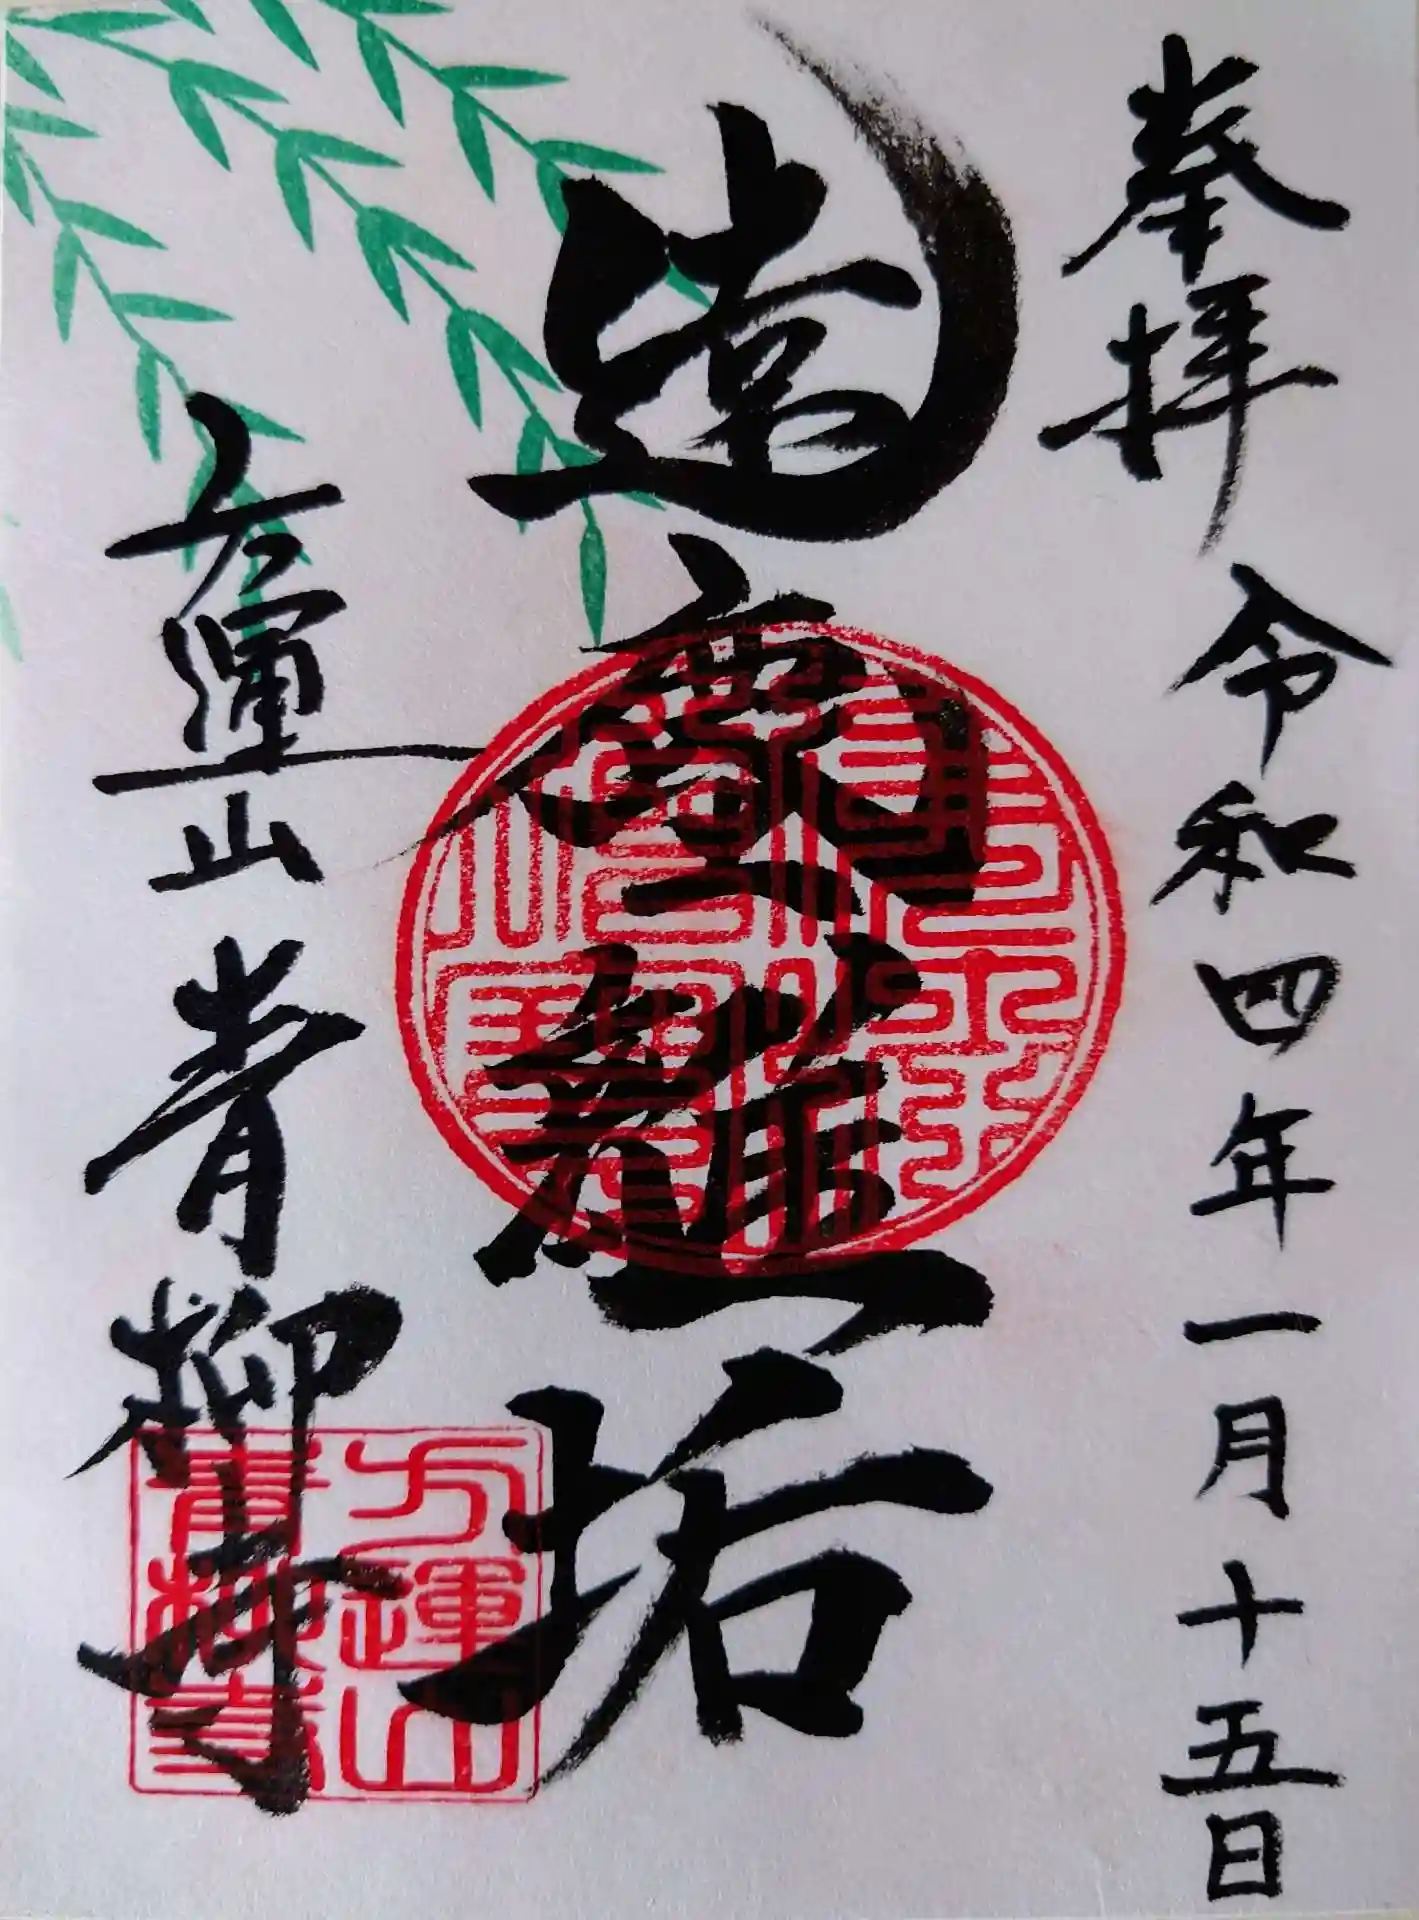 奉拝 令和四年一月十五日
遠塵離垢
方運山 青柳寺
方運山
青柳寺